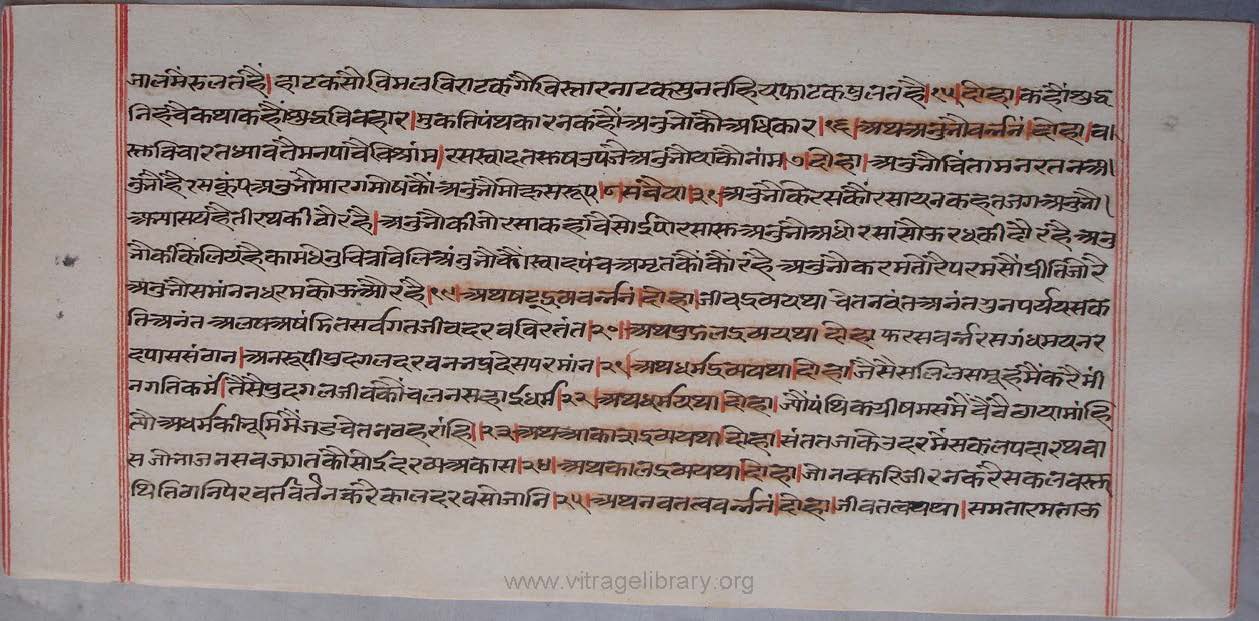 जालमैं रुलत हैं। हाटकसौ विमल विराटकगै विस्तार नाटक सुनत हिय फाटक षुलत है।१५।दोहा।कहौं शुद्ध
निहचै कथा कहौं शुद्ध विवहार।मुकतिपंथ कारन कहौं अनुंनौकौ अधिकार।१६।अथ अनुंनौ वर्न्ननं।दोहा।वा
स्त विचारत ध्यावतै मन पावै विश्रांम।रस स्वादत सुष उपजै अनुंनौ याकौ नांम ७।दोहा।अनुंनौ चिंतामन रतन अ।
नुंनौ है रसकूप अनुंनौ मारग मोषकौ अनुंनौ मोक्ष सरूप।८।सवैया।३१।अनुंनौके रसकौं रसायन कहत जग अनुंनौ।
अभ्यास यहै तीरथकी ठौर है।अनुंनौकी जो रसा कहावै सोई पोरसा सु अनुंनौ अधोरसासौ ऊरधकी दौर है अनु
नौकी केलि यहै कामधेनु चित्रावेलि अनुंनौकौ स्वाद पंच अमृतकौ कौर है अनुंनौ करम तोरै परमसौं प्रीति जोरै
अनुंनौ समांन न धरम कोऊ और है।१९।अथ षट् द्रव्य वर्न्ननं।दोहा।जीवद्रव्य यथा चेतनवंत अनंत गुन पर्यय सक
ति अनंत अलष अषंडित सर्वगत जीव दरव विरतंत।२०।अथ पुद्गलद्रव्य यथा दोहा फरस वर्न्न रस गंध मय नर
द पास संठान।अनरूपी पुदगल दरव नन प्रदेस परमांन।२१।अथ धर्मद्रव्य यथा।दोहा।जैसै सलिल समूहमैं करै मी
न गति कर्म।तैसै पुदगल जीवकौं चलन सहाई धर्म।२२।अथ धर्म यथा।दोहा।ज्यौं पंथिक ग्रीषम समैं बैठै छाया मांहि
त्यौ अधर्मकी भूमिमैं जड चेतन ठहरांहि।२३।अथ आकाशद्रव्य यथा।दोहा।संतत जाके उदरमैं सकल पदारथ वा
स जो भाजन सब जगतकौ सोई दरव्य अकास।२४।अथ कालद्रव्य यथा।दोहा।जो नव करि जीरन करै सकल वस्त
थिति ठानि परवर्त वर्तन करै काल दरव सो जानि।२५।अथ नवतत्व वर्न्ननं।दोहा।जीवतत्व यथा।समता रमता ऊ
www.vitragelibrary.org